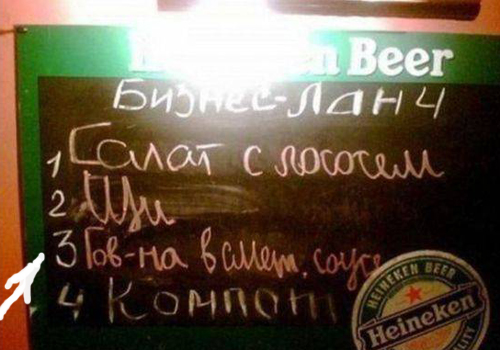 en Beer
Бизнес-Ланч
1 Салат с лососем
2 Щи
3 Гов-на в смет. соусе
4 Компот
HEINEKEN BEER
Heineken
QUALITY